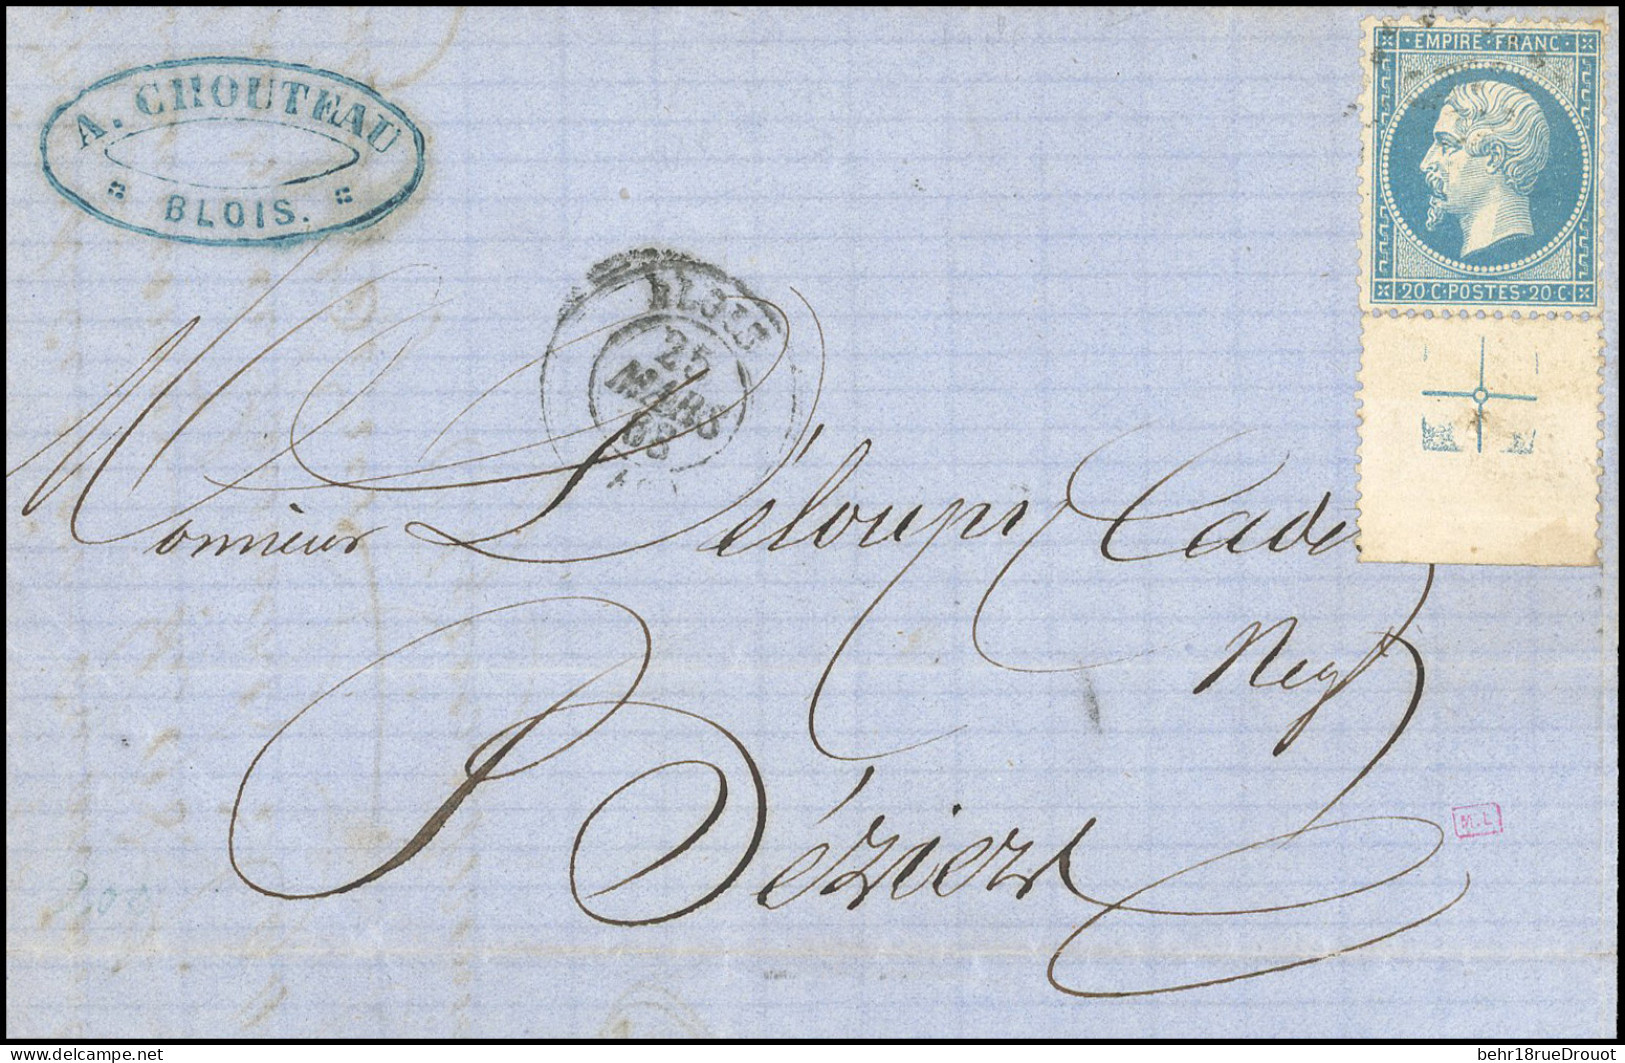 A. CHOUTEAU
BLOIS.
EMPIRE · FRANC ·
20 C · POSTES · 20 C
BLOIS
25
MARS
68
Monsieur Déloupy Cadet
Negt
Béziers
M.L
delcampe.net
behr18rueDrouot